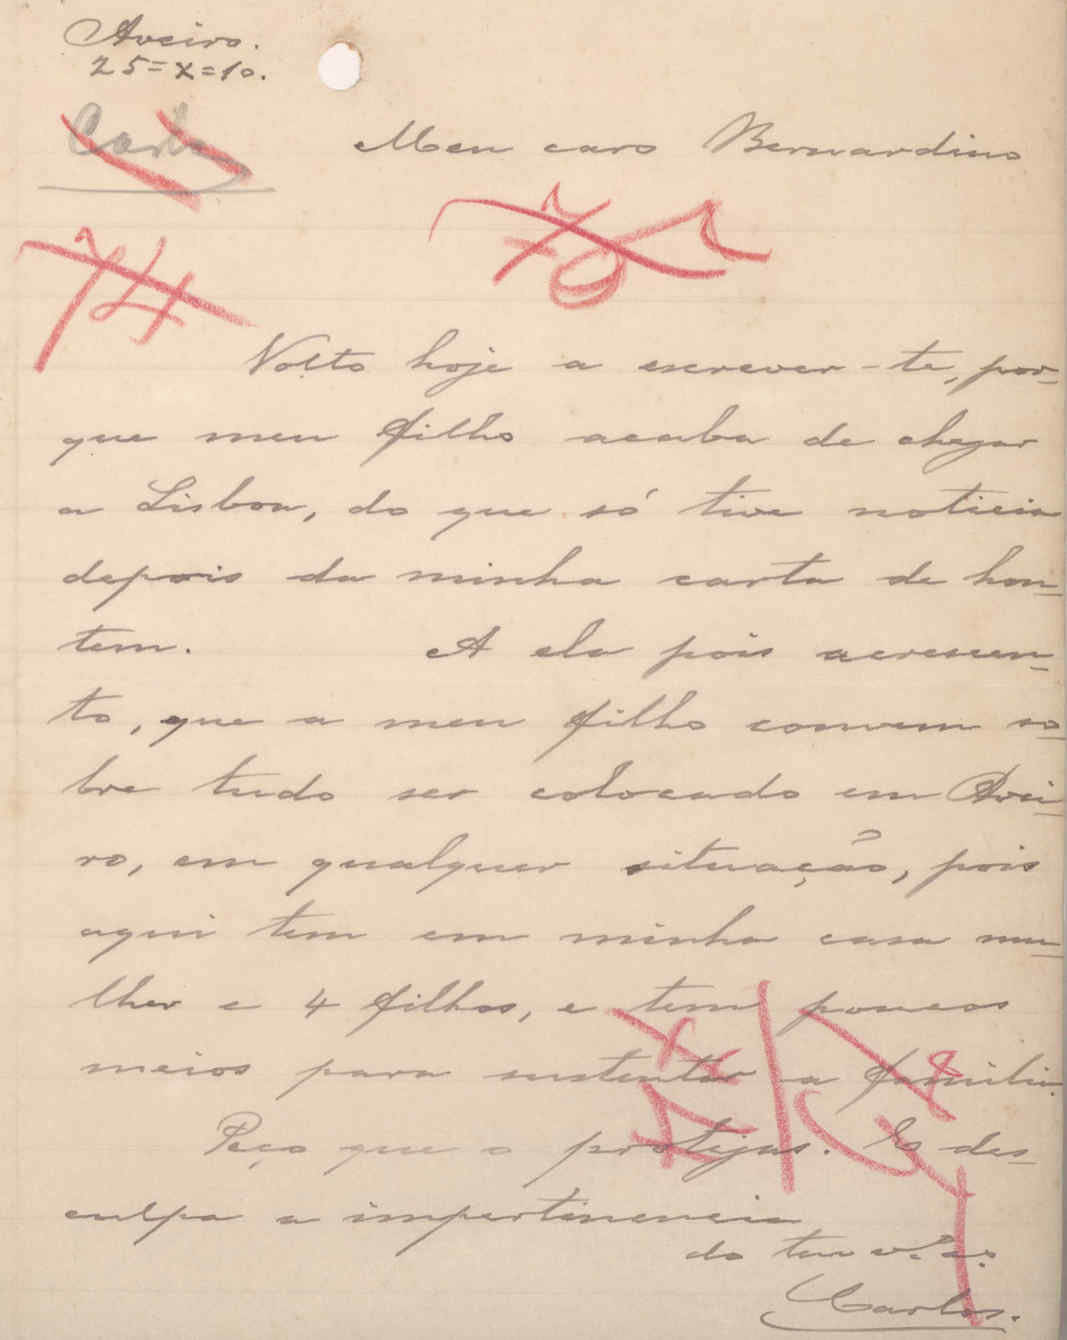 Aveiro.
25=X=10.
Carlos
Meu caro Bernardino
74
Volto hoje a escrever-te, por-
que meu filho acaba de chegar
a Lisboa, do que só tive noticia
depois da minha carta de hon-
tem. A ela pois acrescen-
to, que a meu filho convem so-
bre tudo ser colocado em Avei-
ro, em qualquer situação, pois
aqui tem em minha casa mu-
lher e 4 filhos, e tem poucos
meios para sustentar a familia.
Peço que o protejas. E des-
culpa a impertinencia
do teu
Carlos.